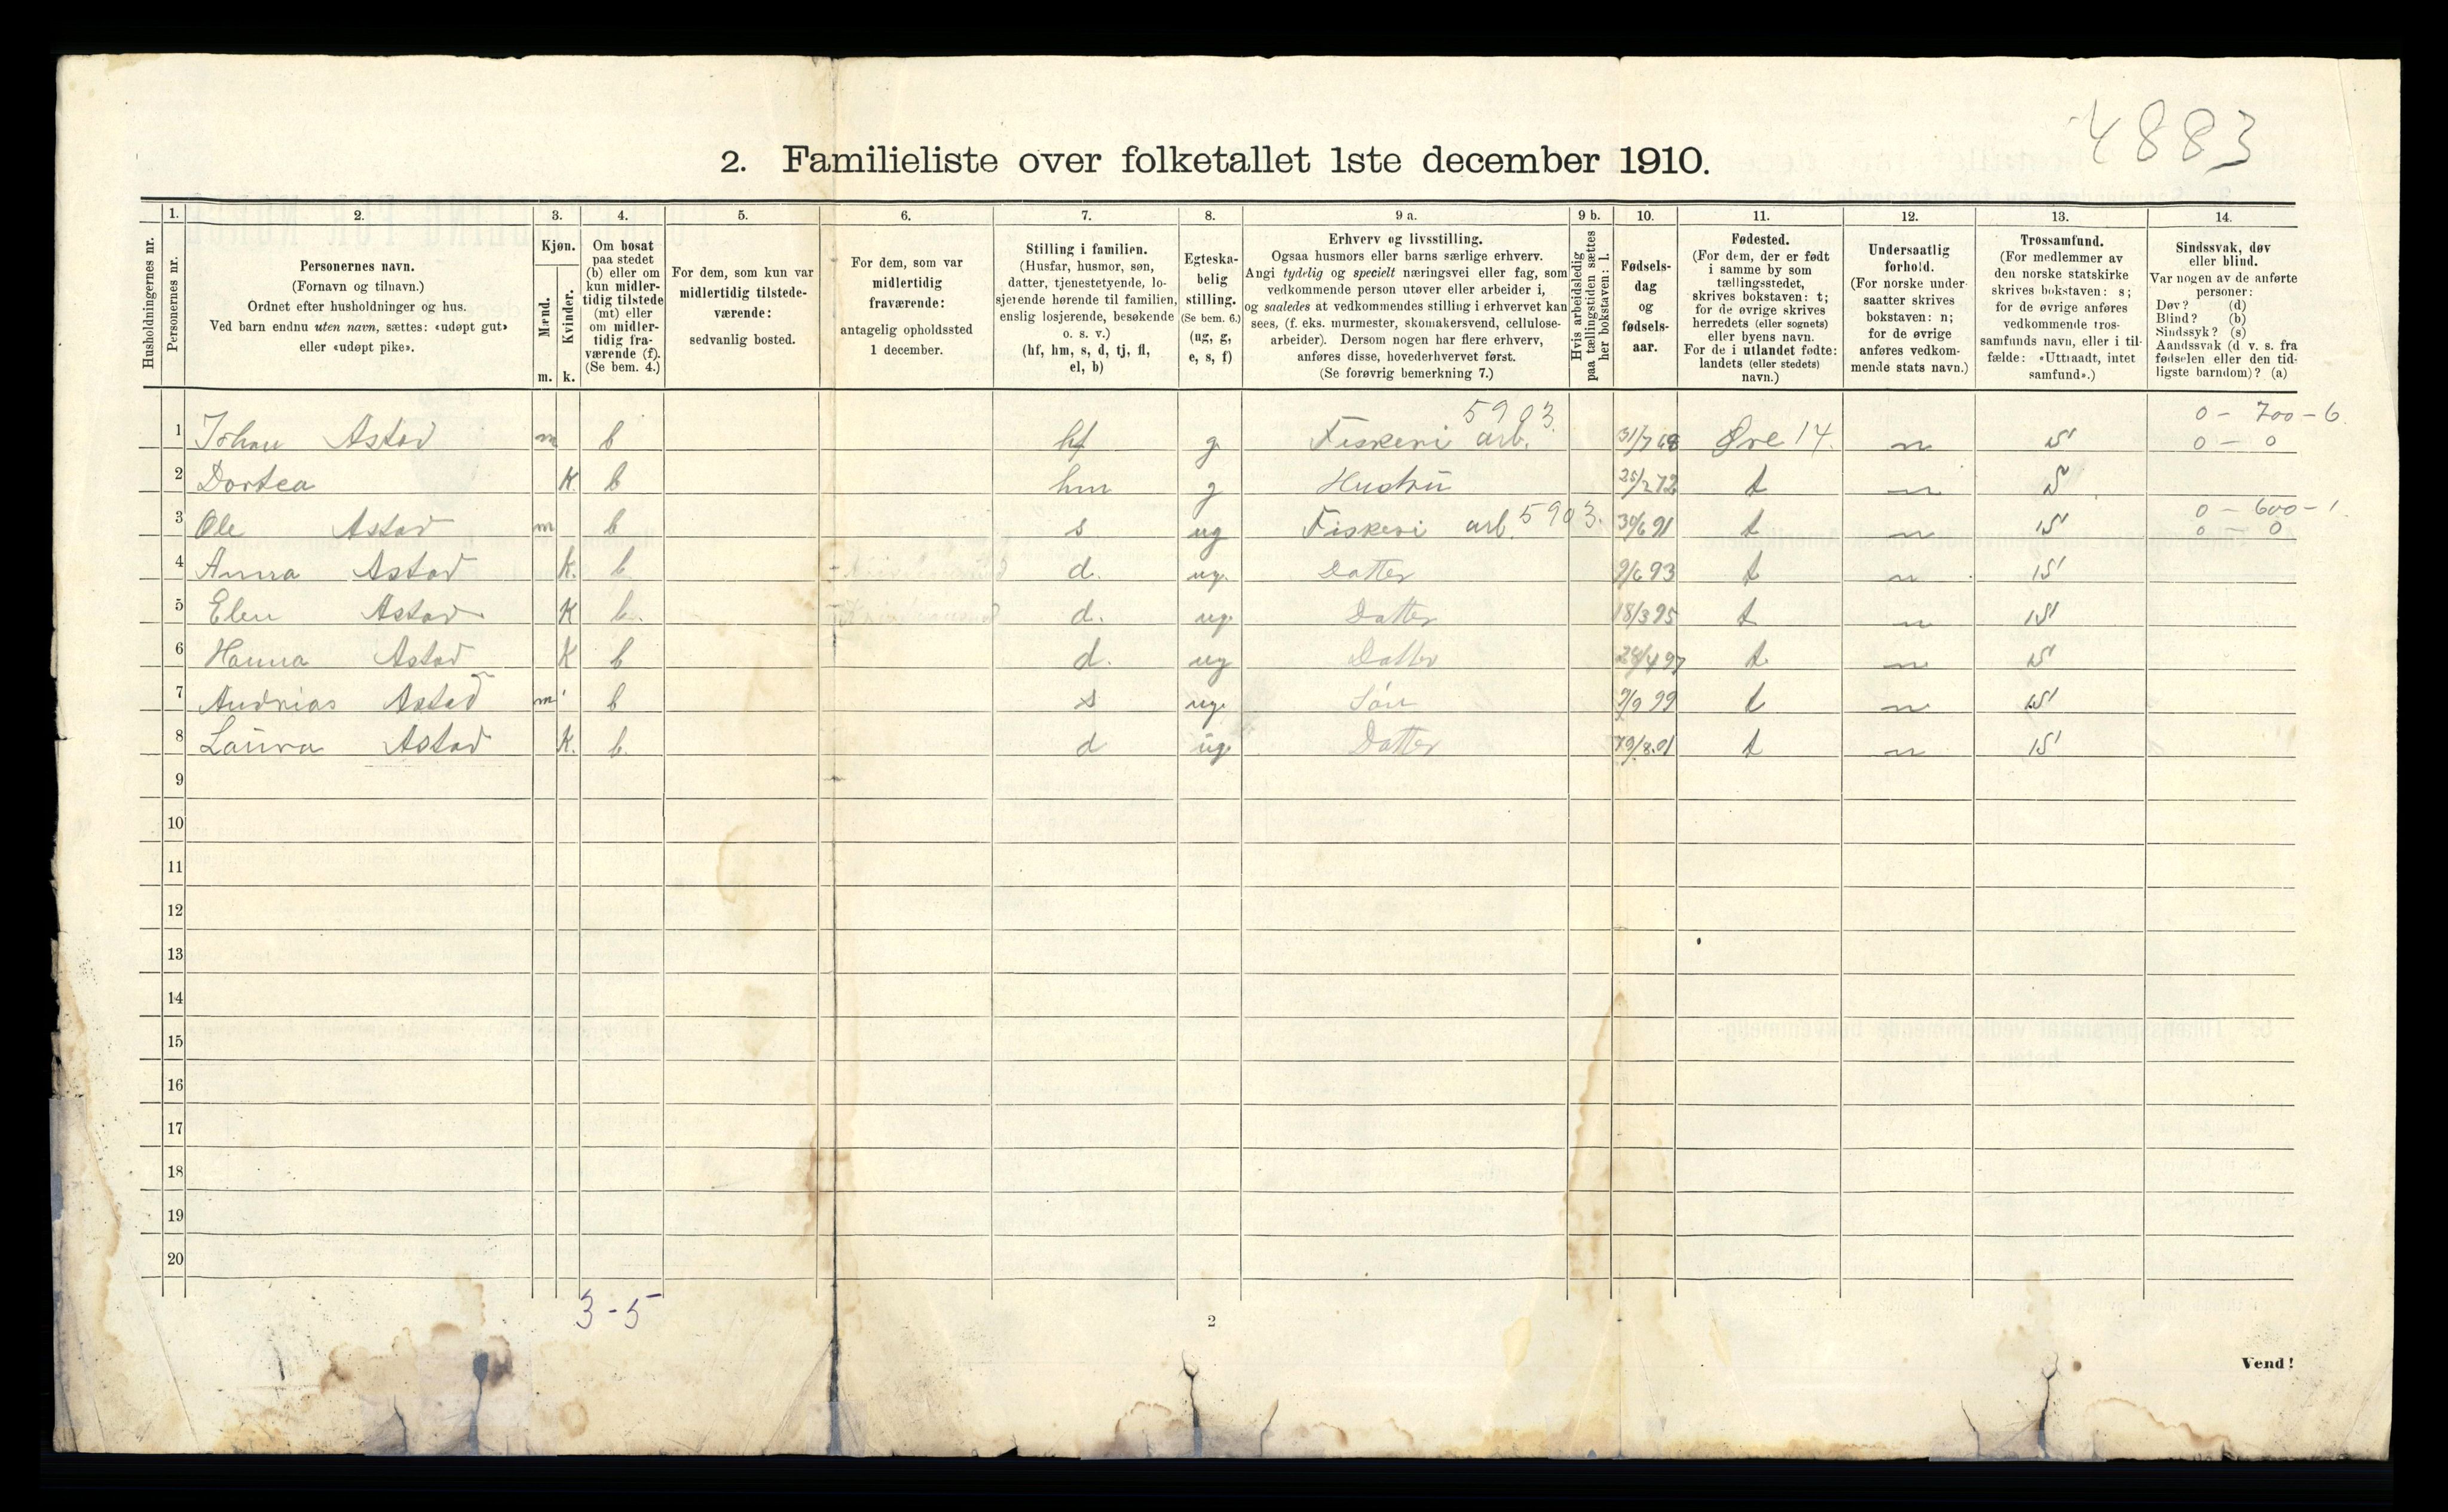 4883
2. Familieliste over folketallet 1ste december 1910.
Husholdningernes nr.
1.
Personernes nr.
2.
Personernes navn.
(Fornavn og tilnavn.)
Ordnet efter husholdninger og hus.
Ved barn endnu uten navn, sættes: «udøpt gut»
eller «udøpt pike».
3.
Kjøn.
Mænd.
m.
Kvinder.
k.
4.
Om bosat
paa stedet
(b) eller om
kun midler-
tidig tilstede
(mt) eller
om midler-
tidig fra-
værende (f).
(Se bem. 4.)
5.
For dem, som kun var
midlertidig tilstede-
værende:
sedvanlig bosted.
6.
For dem, som var
midlertidig
fraværende:
antagelig opholdssted
1 december.
7.
Stilling i familien.
(Husfar, husmor, søn,
datter, tjenestetyende, lo-
sjerende hørende til familien,
enslig losjerende, besøkende
o. s. v.)
(hf, hm, s, d, tj, fl,
el, b)
8.
Egteska-
belig
stilling.
(Se bem. 6.)
(ug, g,
e, s, f)
9 a.
Erhverv og livsstilling.
Ogsaa husmors eller barns særlige erhverv.
Angi tydelig og specielt næringsvei eller fag, som
vedkommende person utøver eller arbeider i,
og saaledes at vedkommendes stilling i erhvervet kan
sees, (f. eks. murmester, skomakersvend, cellulose-
arbeider). Dersom nogen har flere erhverv,
anføres disse, hovederhvervet først.
(Se forøvrig bemerkning 7.)
9 b.
Hvis arbeidsledig
paa tællingstiden sættes
her bokstaven: l.
10.
Fødsels-
dag
og
fødsels-
aar.
11.
Fødested.
(For dem, der er født
i samme by som
tællingsstedet,
skrives bokstaven: t;
for de øvrige skrives
herredets (eller sognets)
eller byens navn.
For de i utlandet fødte:
landets (eller stedets)
navn.)
12.
Undersaatlig
forhold.
(For norske under-
saatter skrives
bokstaven: n;
for de øvrige
anføres vedkom-
mende stats navn.)
13.
Trossamfund.
(For medlemmer av
den norske statskirke
skrives bokstaven: s;
for de øvrige anføres
vedkommende tros-
samfunds navn, eller i til-
fælde: «Uttraadt, intet
samfund».)
14.
Sindssvak, døv
eller blind.
Var nogen av de anførte
personer:
Døv? (d)
Blind? (b)
Sindssyk? (s)
Aandssvak (d. v. s. fra
fødselen eller den tid-
ligste barndom)? (a)
5903. 0 - 700 - 6
1 Johan Astad m b hf g Fiskeri arb. 31/7 68 Øre 14. n s 0 - 0
2 Dortea K b hm g Hustru 25/2 72 t n s
0 - 600 - 1
3 Ole Astad m b s ug Fiskeri arb. 5903. 30/6 91 t n s 0 - 0
4 Anna Astad K. b d. ug. Datter 9/6 93 t n s
5 Elen Astad K b. d. ug. Datter 18/3 95 t n s
6 Hanna Astad K b d. ug Datter 28/4 97 t n s
7 Andrias Astad m b s ug. Søn 9/9 99 t n s
8 Laura Astad K. b. d ug. Datter 19/8.01 t n s
9
10
11
12
13
14
15
16
17
18
19
20
3-5
2
Vend!